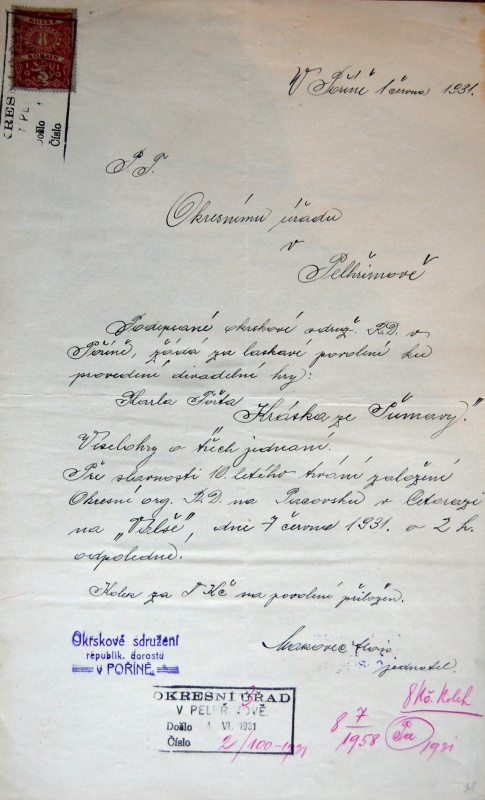 KOLEK
8
OKRES
V PEL
Došlo
Číslo
V Poříně 1 června 1931.
P. T.
Okresnímu úřadu
v
Pelhřimově
Podepsané okrskové odruž. R.D. v
Poříně, žádá za laskavé povolení ku
provedení divadelní hry:
Karla Fořta
Kráska ze Šumavy."
Veselohry o třech jednání.
Při slavnosti 10. letého trvání založení
Okresní org. R.D. na Pacovsku v Cetorazi
na dne 7 června 1931. o 2 h.
odpoledne.
Kolek za 5 Kč na povolení přiložen.
Makovec Alois
jednatel.
Okrskové sdružení
republik. dorostu
V POŘÍNĚ.
8 Kč. Kolek
OKRESNÍ ÚŘAD
V PELHŘIMOVĚ.
Došlo VI. 1931
Číslo 2/100-1931
8 7
1958 1931